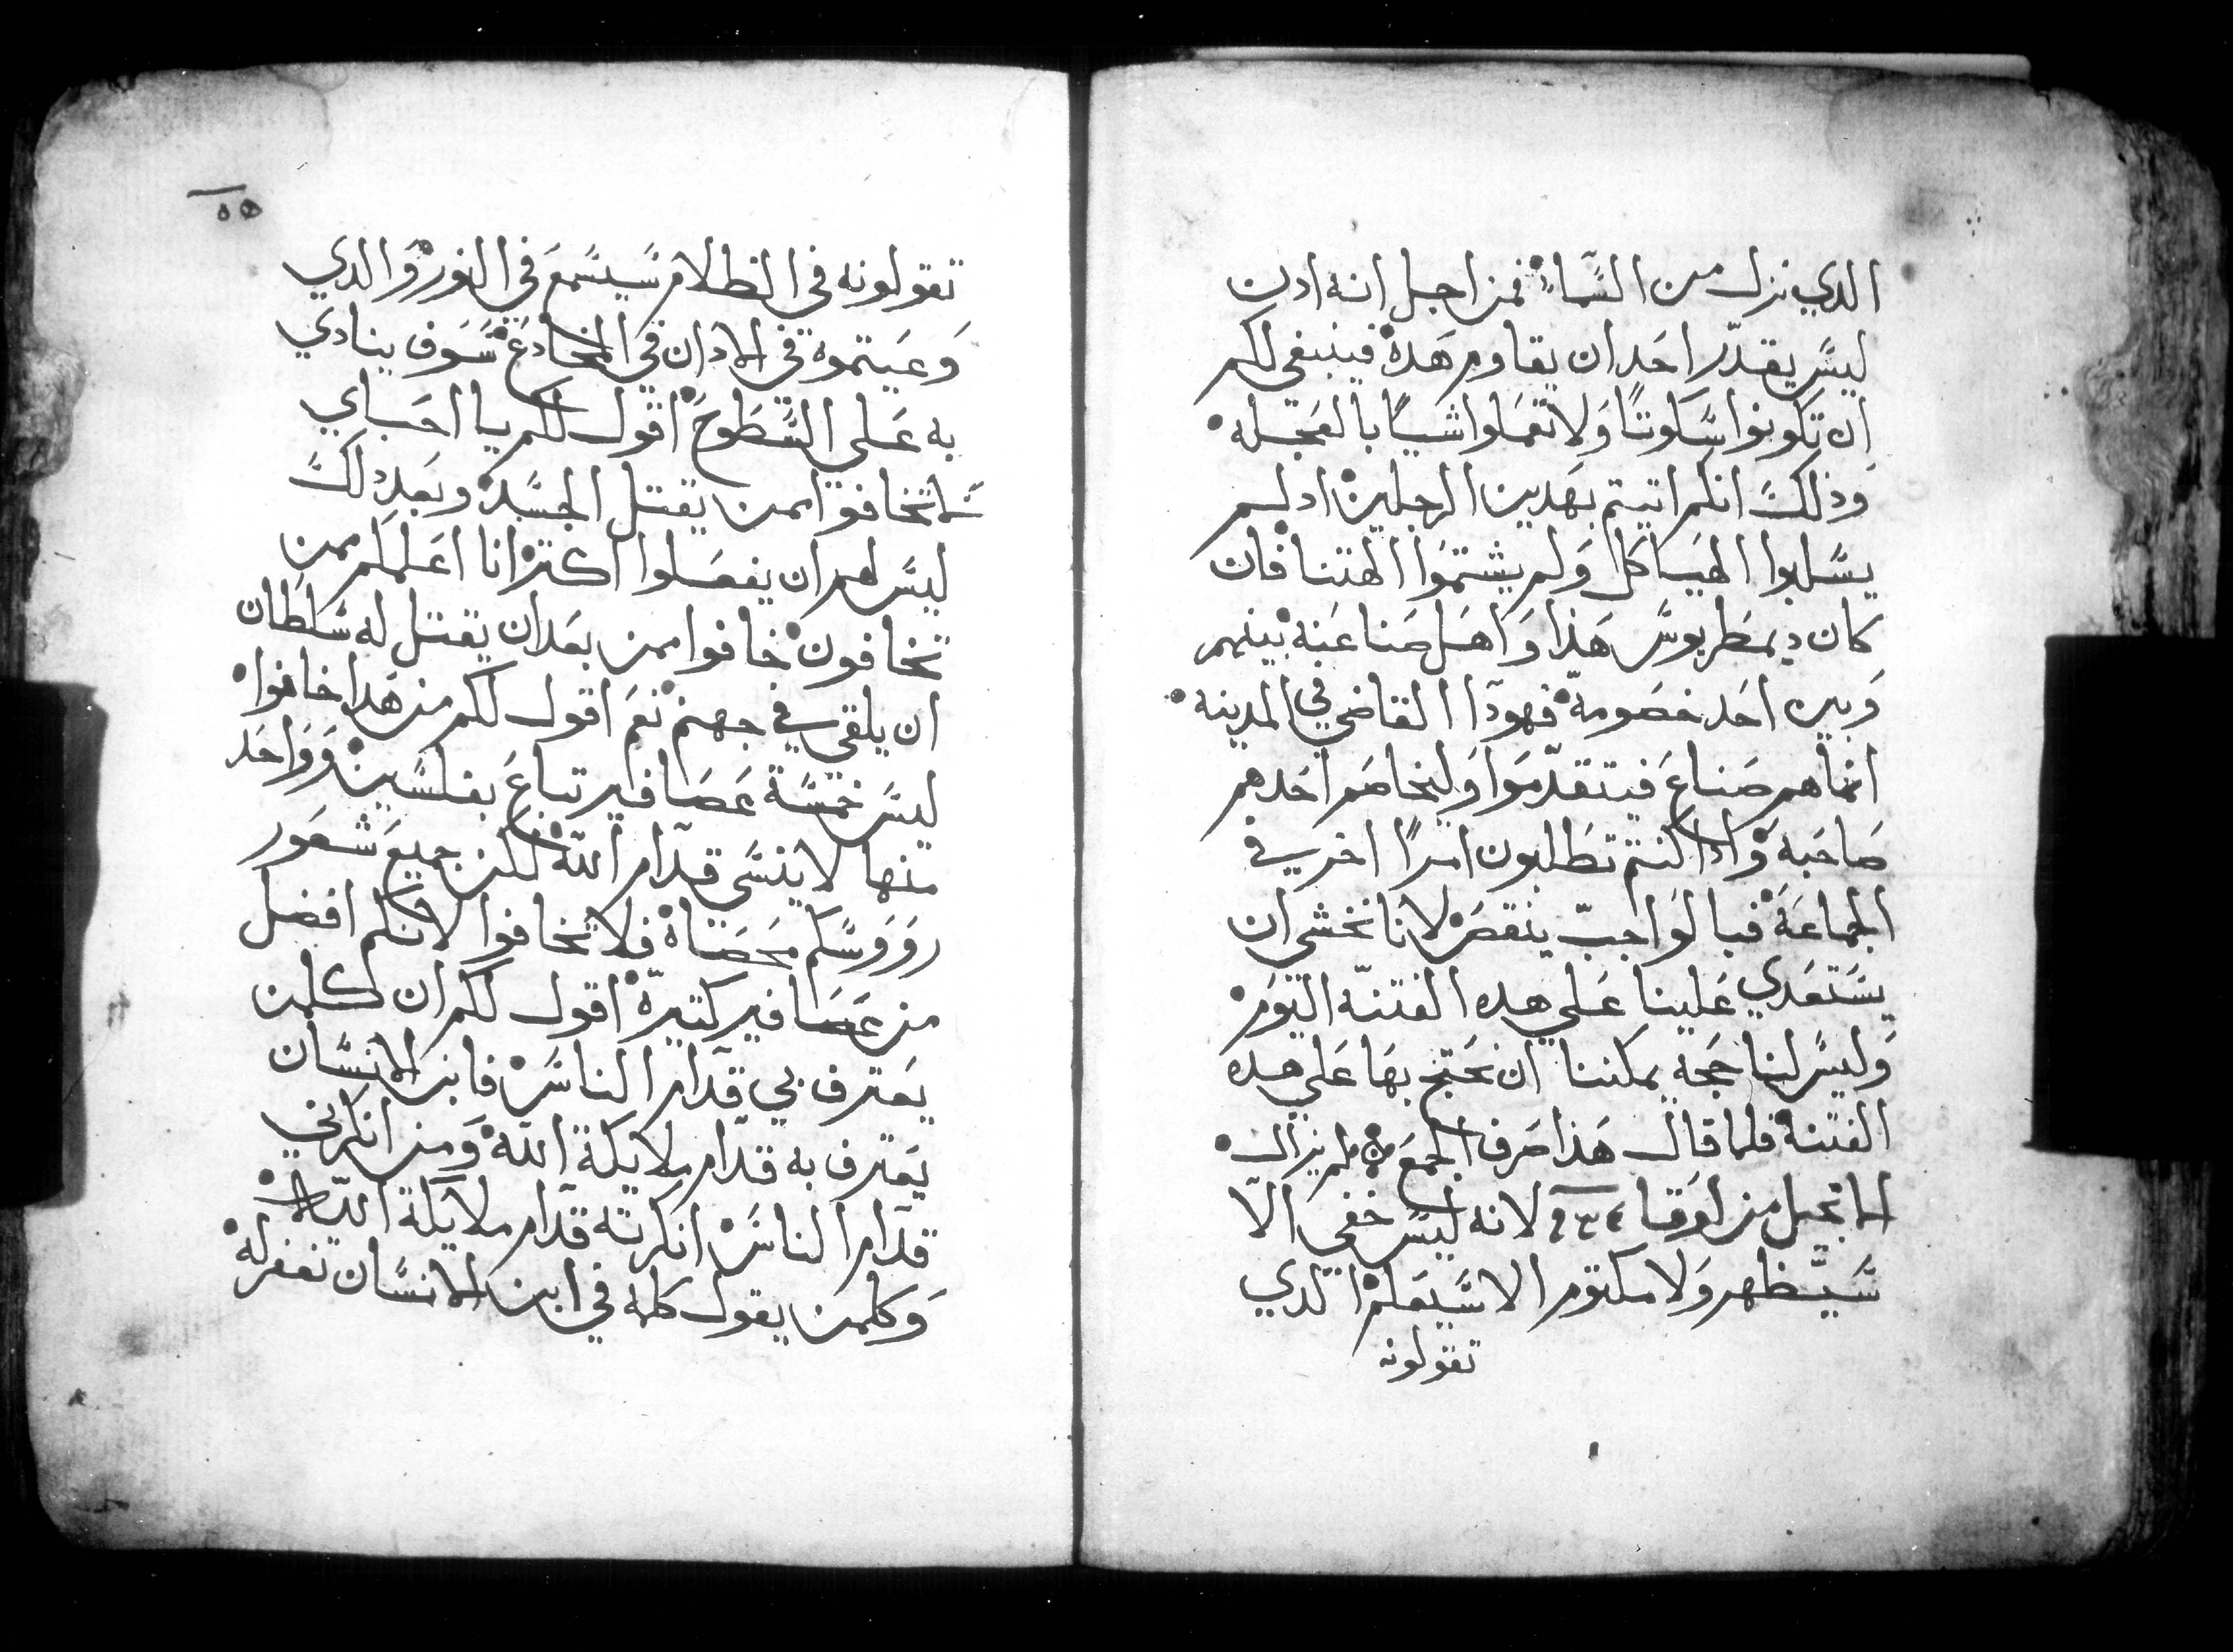 الدي نزل من السَّماء فمن اجل انه ادن
ليسَّ يقدّر احَد ان يقاوم هَده فينبغي لكم
ان تكونوا سَّكوتًا وَلا تعَملوا شيًا بالعَجله
وذلكَ انكم اتيتم بهَدين الرجلين ادلم
يسَّلبوا الهَياكل وَلم يشتموَا الهتنا فان
كان ديمطريوسَّ هَذا وَاهَل صَناعَته بينهم
وَبين احَد خصَومهّ فهودَا القاضي في المدينه
انما هم صَناعَ فيتقدّموَا وَليخاصَم احَدهم
صَاحَبه وَادا كنتم تطَلبون امرًا اخر في
الجماعَة فبالوَاجبّ ينقصَ لانا نخشى ان
يسَّتعَدي عَلينا عَلي هده الفتنه اليَومَ
وَليسَّ لنا حَجه يمكننا ان نحَتج بهَا عَلي هده
الفتنة فلما قال هَذا صَرف الجمعَ لم يزال
الانجيل من لوقا لانه ليسَّ خفي الا
سَّيَظهر وَلا مكتوم الا سَّيعَلم الدي
تقولونه
٥٥
تقولونه في الظلام سَّيسَّمعَ في النور وَالدي
وَعَيتموه في الادان في المخادعَ سَّوَف ينادي
به عَلي السَّطَوحَ اقول لكم يا احَباي
لا تخافوا ممن يقتل الجسَّد وبعَد دلكَ
ليسَّ لهم ان يفعَلوا اكتر انا اعَلمكم ممن
تخافون خافوا ممن بعَد ان يقتل له سَّلطَان
ان يلقي في جهنم نعَم اقول لكم من هَدا خافوا
ليسَّ خمسَّة عَصَافير تباعَ بفلسَّين وَوَاحَد
منها لا ينسَّى قدّام اللّه لكن جميعَ شعَور
روَوسَّكم محَصَاه فلا تخافوا لانكم افضل
من عَصَافير كتيرة اقول لكم ان كلمن
يعَترف بي قدّام الناسَّ فابن الانسَّان
يعَترف به قدّام ملايكة اللّه وَمن انكرني
قدّام الناسَّ انكرته قدّام ملايكة اللّه
وَكلمن يقول كلمه في ابن الانسَّان تغفر له